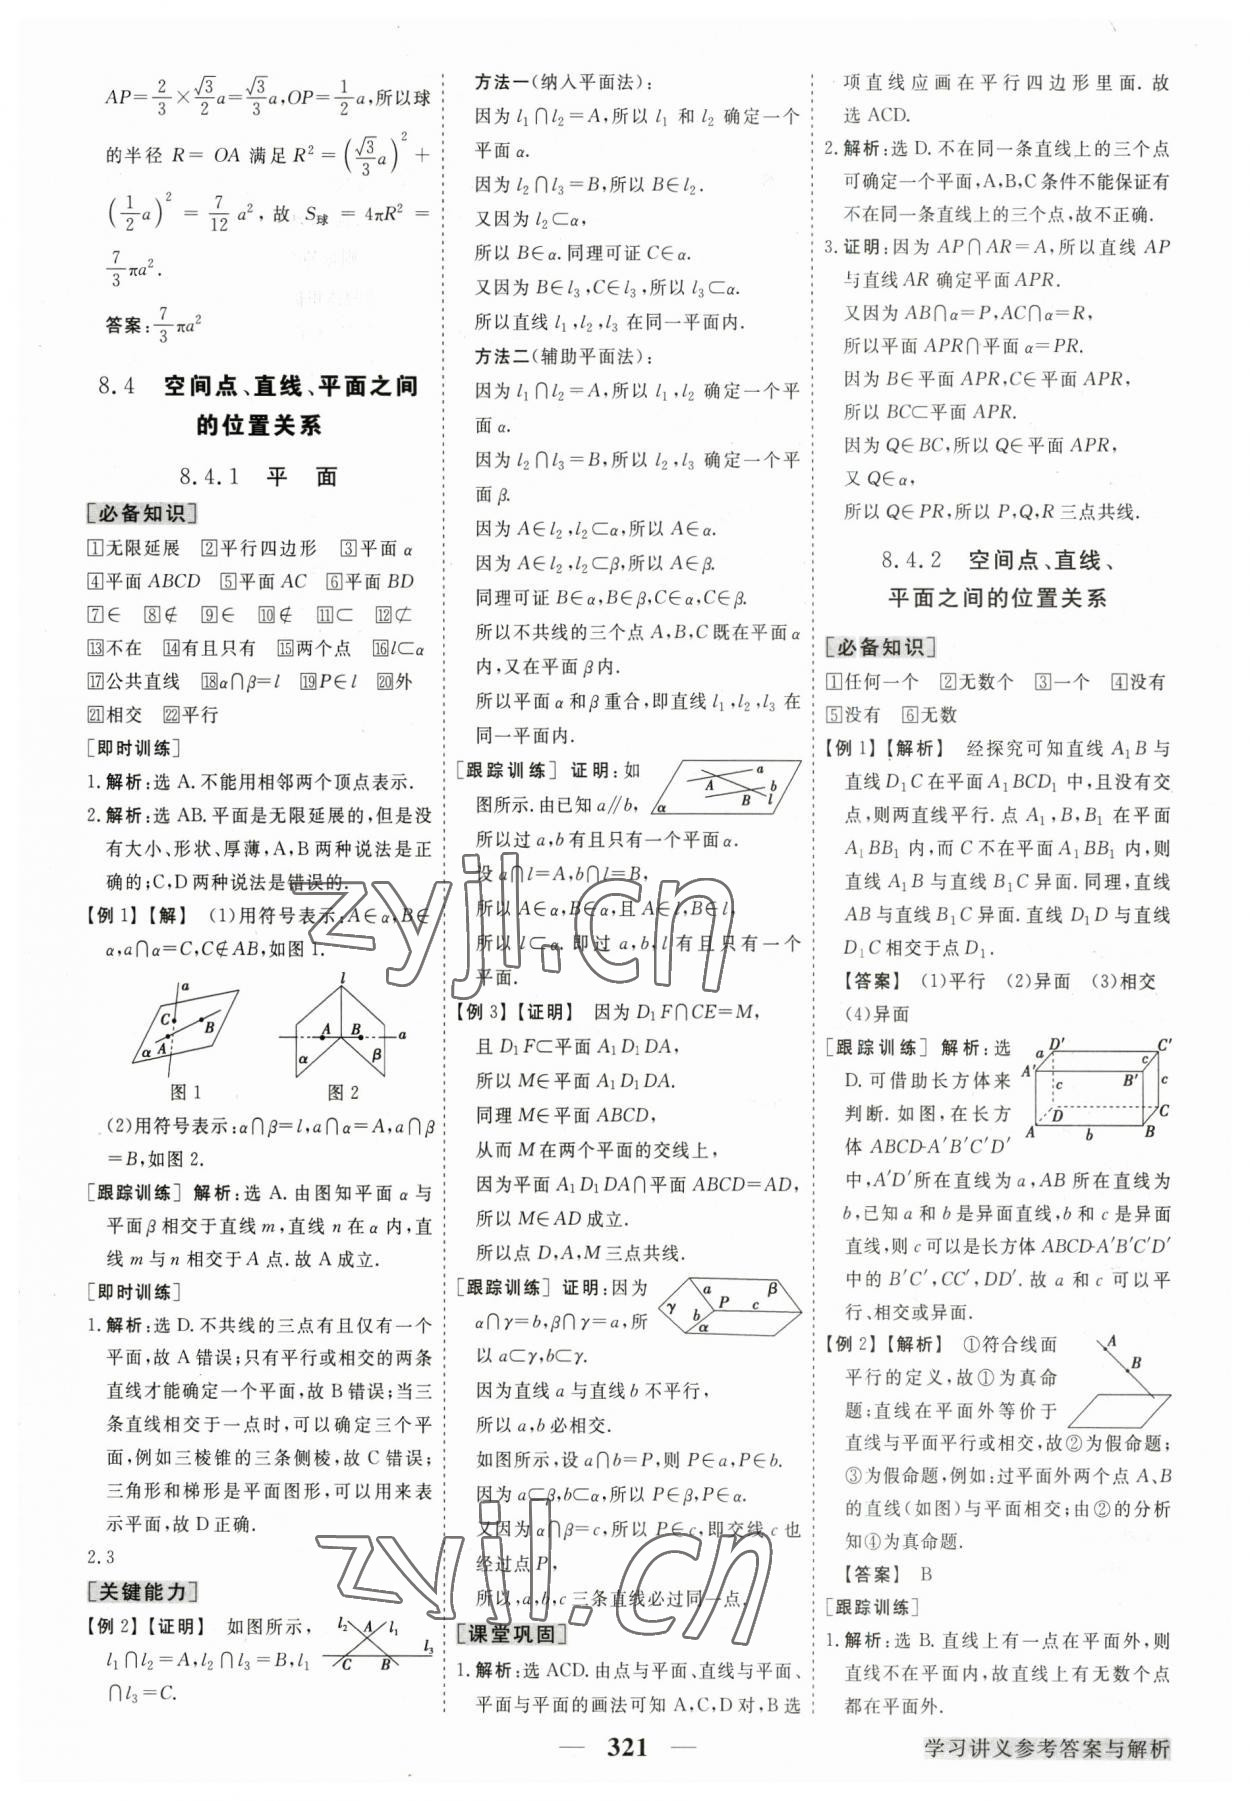 AP=2/3×√3/2a=√3/3a,OP=1/2a,所以球
的半径 R= OA 满足 R²=(√3/3a)²+
(1/2a)² = 7/12a²,故 S球 = 4πR² =
7/3πa².
答案:7/3πa²
8.4 空间点、直线、平面之间
的位置关系
8.4.1 平 面
[必备知识]
1无限延展 2平行四边形 3平面 α
4平面 ABCD 5平面 AC 6平面 BD
7∈ 8∉ 9∈ 10∉ 11⊂ 12⊄
13不在 14有且只有 15两个点 16l⊂α
17公共直线 18α∩β=l 19P∈l 20外
21相交 22平行
[即时训练]
1.解析:选 A.不能用相邻两个顶点表示.
2.解析:选 AB.平面是无限延展的,但是没
有大小、形状、厚薄,A,B 两种说法是正
确的;C,D 两种说法是错误的.
【例 1】【解】 (1)用符号表示:A∈α,B∈
α,a∩α=C,C∉AB,如图 1.
a C B A α
图 1
l A B a α β
图 2
(2)用符号表示:α∩β=l,a∩α=A,a∩β
=B,如图 2.
[跟踪训练] 解析:选 A.由图知平面 α 与
平面 β 相交于直线 m,直线 n 在 α 内,直
线 m 与 n 相交于 A 点.故 A 成立.
[即时训练]
1.解析:选 D.不共线的三点有且仅有一个
平面,故 A 错误;只有平行或相交的两条
直线才能确定一个平面,故 B 错误;当三
条直线相交于一点时,可以确定三个平
面,例如三棱锥的三条侧棱,故 C 错误;
三角形和梯形是平面图形,可以用来表
示平面,故 D 正确.
2.3
[关键能力]
【例 2】【证明】 如图所示,
l₁∩l₂=A,l₂∩l₃=B,l₁
∩l₃=C.
l₂ A l₁ l₃ C B
方法一(纳入平面法):
因为 l₁∩l₂=A,所以 l₁ 和 l₂ 确定一个
平面 α.
因为 l₂∩l₃=B,所以 B∈l₂.
又因为 l₂⊂α,
所以 B∈α.同理可证 C∈α.
又因为 B∈l₃,C∈l₃,所以 l₃⊂α.
所以直线 l₁,l₂,l₃ 在同一平面内.
方法二(辅助平面法):
因为 l₁∩l₂=A,所以 l₁,l₂ 确定一个平
面 α.
因为 l₂∩l₃=B,所以 l₂,l₃ 确定一个平
面 β.
因为 A∈l₂,l₂⊂α,所以 A∈α.
因为 A∈l₂,l₂⊂β,所以 A∈β.
同理可证 B∈α,B∈β,C∈α,C∈β.
所以不共线的三个点 A,B,C 既在平面 α
内,又在平面 β 内.
所以平面 α 和 β 重合,即直线 l₁,l₂,l₃ 在
同一平面内.
[跟踪训练] 证明:如
图所示.由已知 a∥b,
所以过 a,b 有且只有一个平面 α.
设 a∩l=A,b∩l=B,
所以 A∈α,B∈α,且 A∈l,B∈l,
所以 l⊂α.即过 a,b,l 有且只有一个
平面.
a A b B l α
【例 3】【证明】 因为 D₁F∩CE=M,
且 D₁F⊂平面 A₁D₁DA,
所以 M∈平面 A₁D₁DA.
同理 M∈平面 ABCD,
从而 M 在两个平面的交线上,
因为平面 A₁D₁DA∩平面 ABCD=AD,
所以 M∈AD 成立.
所以点 D,A,M 三点共线.
[跟踪训练] 证明:因为
α∩γ=b,β∩γ=a,所
以 a⊂γ,b⊂γ.
因为直线 a 与直线 b 不平行,
所以 a,b 必相交.
如图所示,设 a∩b=P,则 P∈a,P∈b.
因为 a⊂β,b⊂α,所以 P∈β,P∈α.
又因为 α∩β=c,所以 P∈c,即交线 c 也
经过点 P,
所以,a,b,c 三条直线必过同一点.
a β γ P b c α
[课堂巩固]
1.解析:选 ACD.由点与平面、直线与平面、
平面与平面的画法可知 A,C,D 对,B 选
项直线应画在平行四边形里面.故
选 ACD.
2.解析:选 D.不在同一条直线上的三个点
可确定一个平面,A,B,C 条件不能保证有
不在同一条直线上的三个点,故不正确.
3.证明:因为 AP∩AR=A,所以直线 AP
与直线 AR 确定平面 APR.
又因为 AB∩α=P,AC∩α=R,
所以平面 APR∩平面 α=PR.
因为 B∈平面 APR,C∈平面 APR,
所以 BC⊂平面 APR.
因为 Q∈BC,所以 Q∈平面 APR,
又 Q∈α,
所以 Q∈PR,所以 P,Q,R 三点共线.
8.4.2 空间点、直线、
平面之间的位置关系
[必备知识]
1任何一个 2无数个 3一个 4没有
5没有 6无数
【例 1】【解析】 经探究可知直线 A₁B 与
直线 D₁C 在平面 A₁BCD₁ 中,且没有交
点,则两直线平行.点 A₁,B,B₁ 在平面
A₁BB₁ 内,而 C 不在平面 A₁BB₁ 内,则
直线 A₁B 与直线 B₁C 异面.同理,直线
AB 与直线 B₁C 异面.直线 D₁D 与直线
D₁C 相交于点 D₁.
【答案】 (1)平行 (2)异面 (3)相交
(4)异面
[跟踪训练] 解析:选
D.可借助长方体来
判断.如图,在长方
体 ABCD-A′B′C′D′
中,A′D′所在直线为 a,AB 所在直线为
b,已知 a 和 b 是异面直线,b 和 c 是异面
直线,则 c 可以是长方体 ABCD-A′B′C′D′
中的 B′C′,CC′,DD′.故 a 和 c 可以平
行、相交或异面.
a D′ C′ A′ c B′ c c D C A b B
【例 2】【解析】 ①符合线面
平行的定义,故①为真命
题;直线在平面外等价于
直线与平面平行或相交,故②为假命题;
③为假命题,例如:过平面外两个点 A、B
的直线(如图)与平面相交;由②的分析
知④为真命题.
【答案】 B
A B
[跟踪训练]
1.解析:选 B.直线上有一点在平面外,则
直线不在平面内,故直线上有无数个点
都在平面外.
zyjl.cn
zyjl.cn
— 321 —
学习讲义参考答案与解析